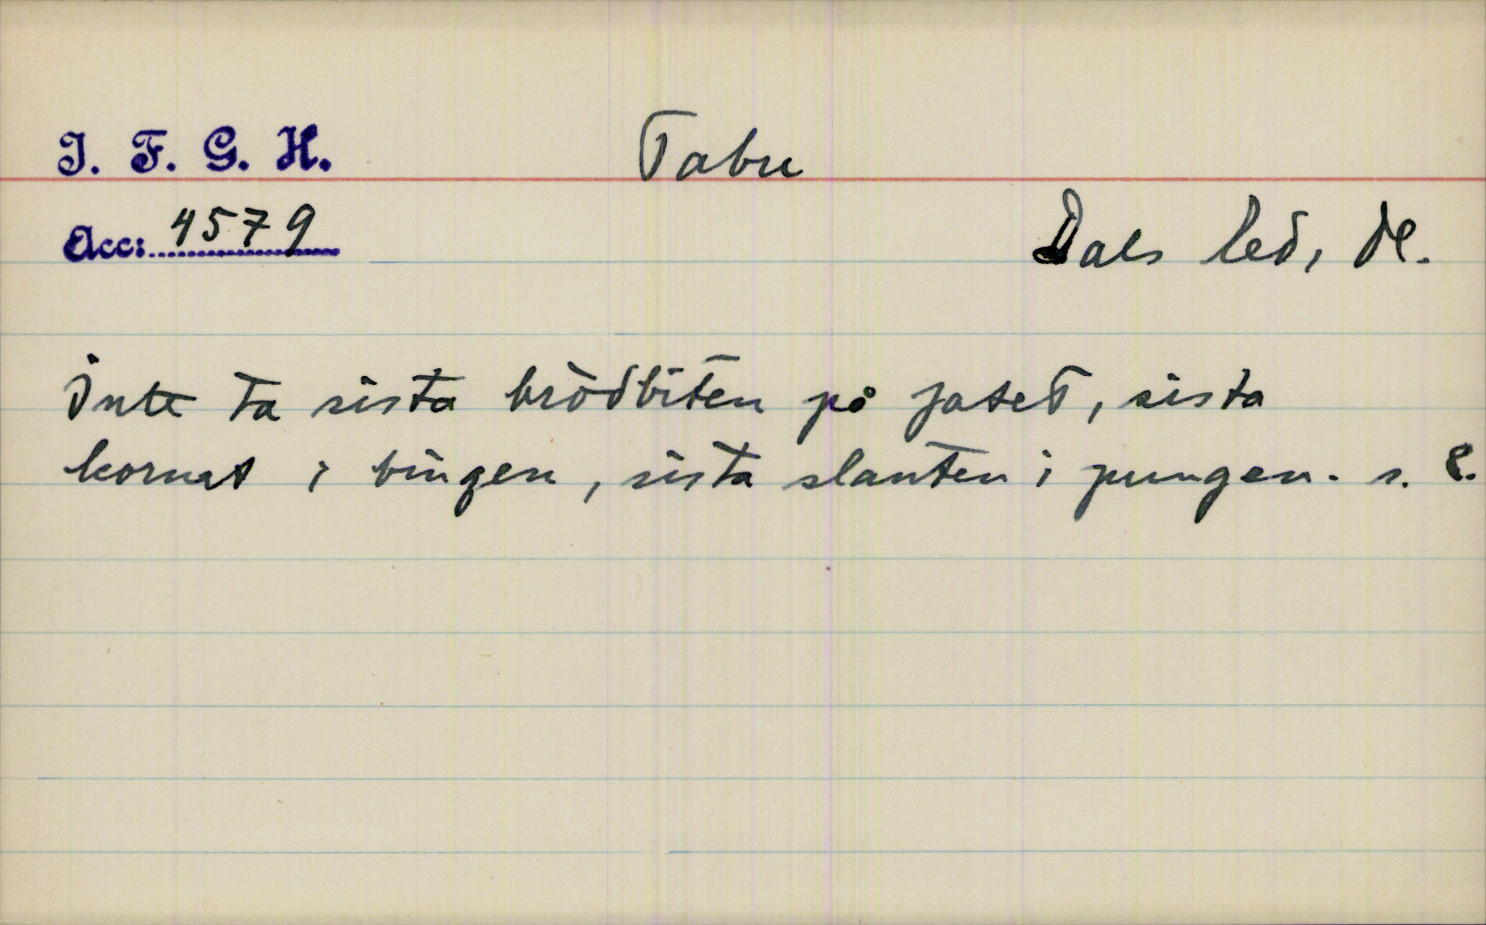 I. F. G. H.
Tabu
Acc: 4579
Dals Ed, Dl.
Inte ta sista brödbiten på fatet, sista
kornet i bingen, sista slanten i pungen. s. 8.